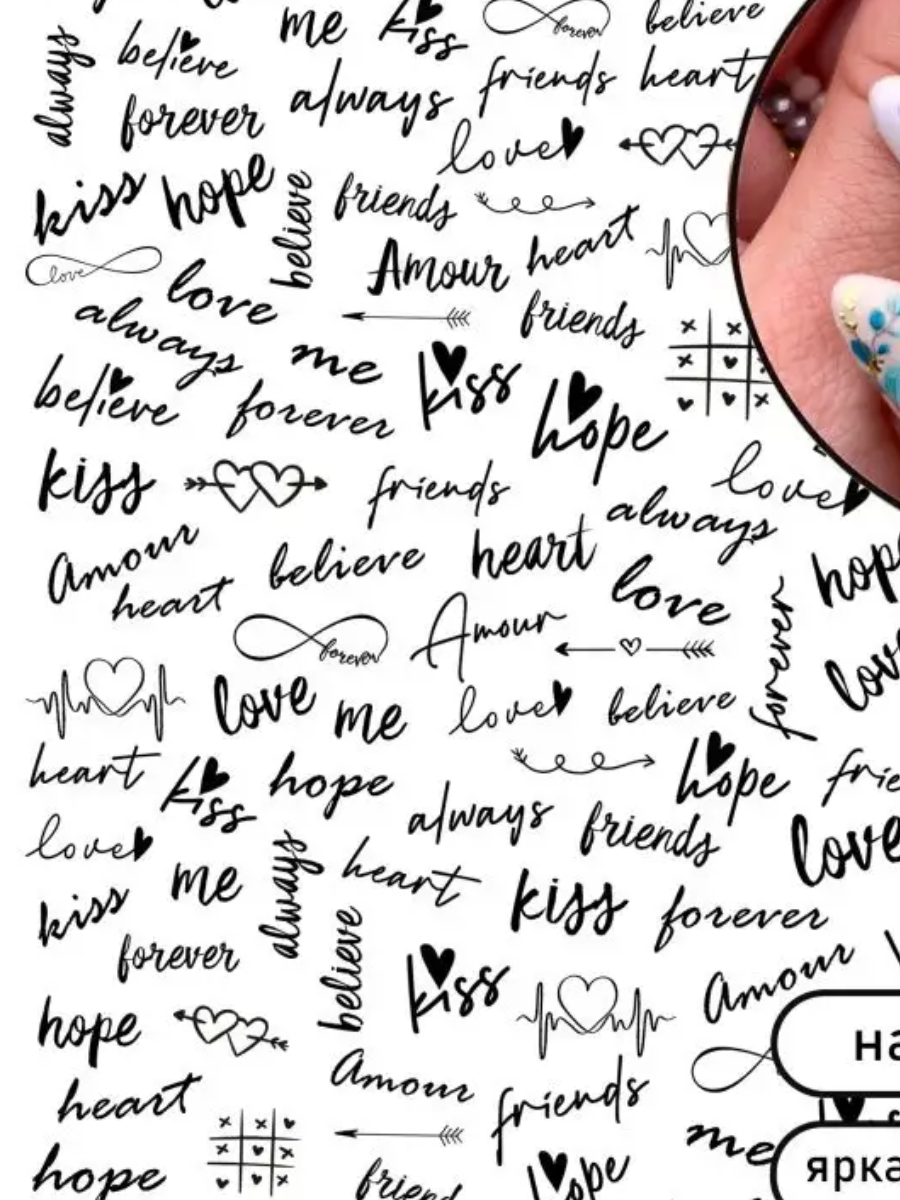 me kiss forever believe
always believe friends heart
forever always
love
kiss hope believe friends
Amour heart
love love
always friends
me kiss
believe forever hope
kiss friends love
always
Amour believe heart hope
heart love
forever Amour forever
love me love believe love
heart kiss hope hope
always friends
love me always heart love
kiss kiss forever
forever believe
kiss Amour
hope
Amour
heart friends
me
hope hope